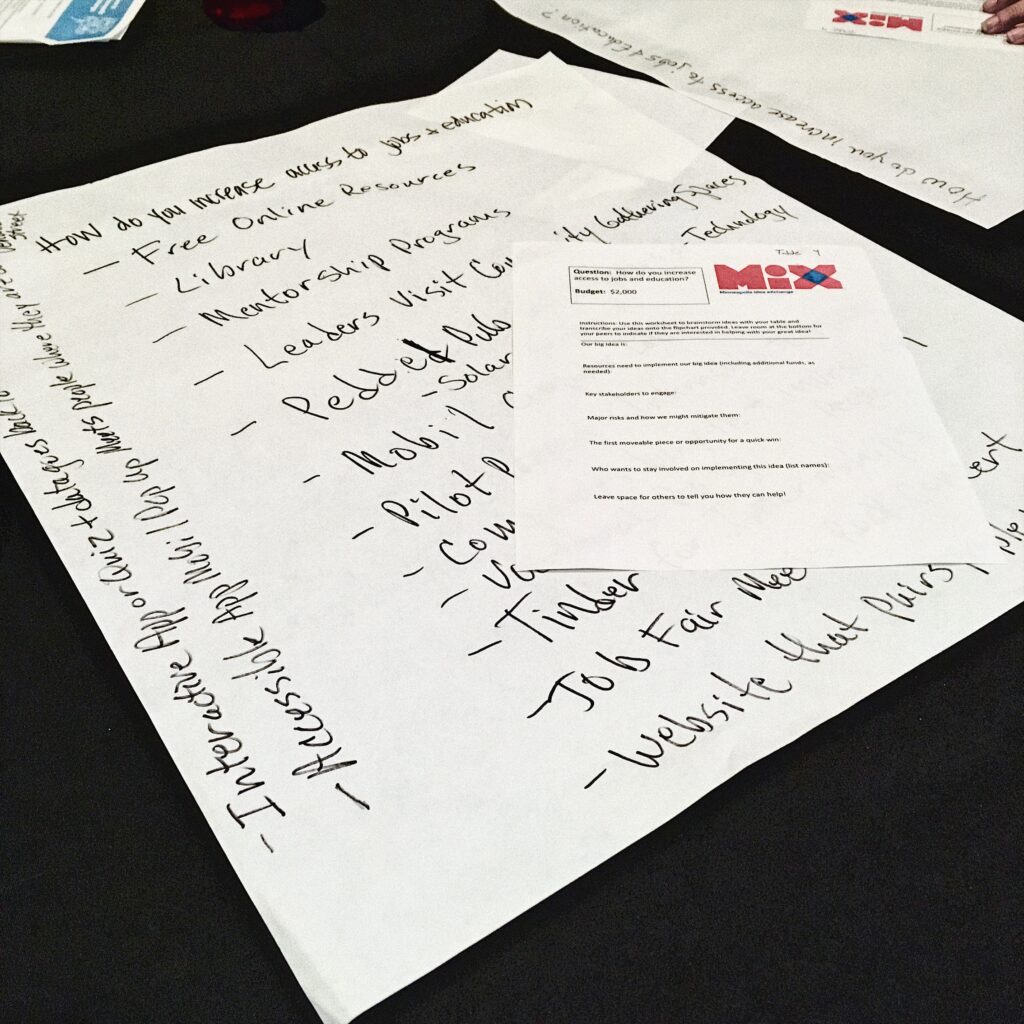 How do you increase access to jobs + education
- Free Online Resources
- Library
- Mentorship Programs
- Leaders Visit
- Pedded Pub
- Solar
- Mobil
- Pilot
- Com
- Tinder
- Job Fair Mee
- Website that pairs
Gathering Spaces
- Technology
- Interactive App or Quiz + data goes back to
- Accessible App / Pop up Meets people where they are @
street
Table 4
Question: How do you increase access to jobs and education?
Budget: $2,000
MiX
Minneapolis idea eXchange
Instructions: Use this worksheet to brainstorm ideas with your table and
transcribe your ideas onto the flipchart provided. Leave room at the bottom for
your peers to indicate if they are interested in helping with your great idea!
Our big idea is:
Resources need to implement our big idea (including additional funds, as
needed):
Key stakeholders to engage:
Major risks and how we might mitigate them:
The first moveable piece or opportunity for a quick win:
Who wants to stay involved on implementing this idea (list names):
Leave space for others to tell you how they can help!
How do you increase access to jobs & Education?
MiX